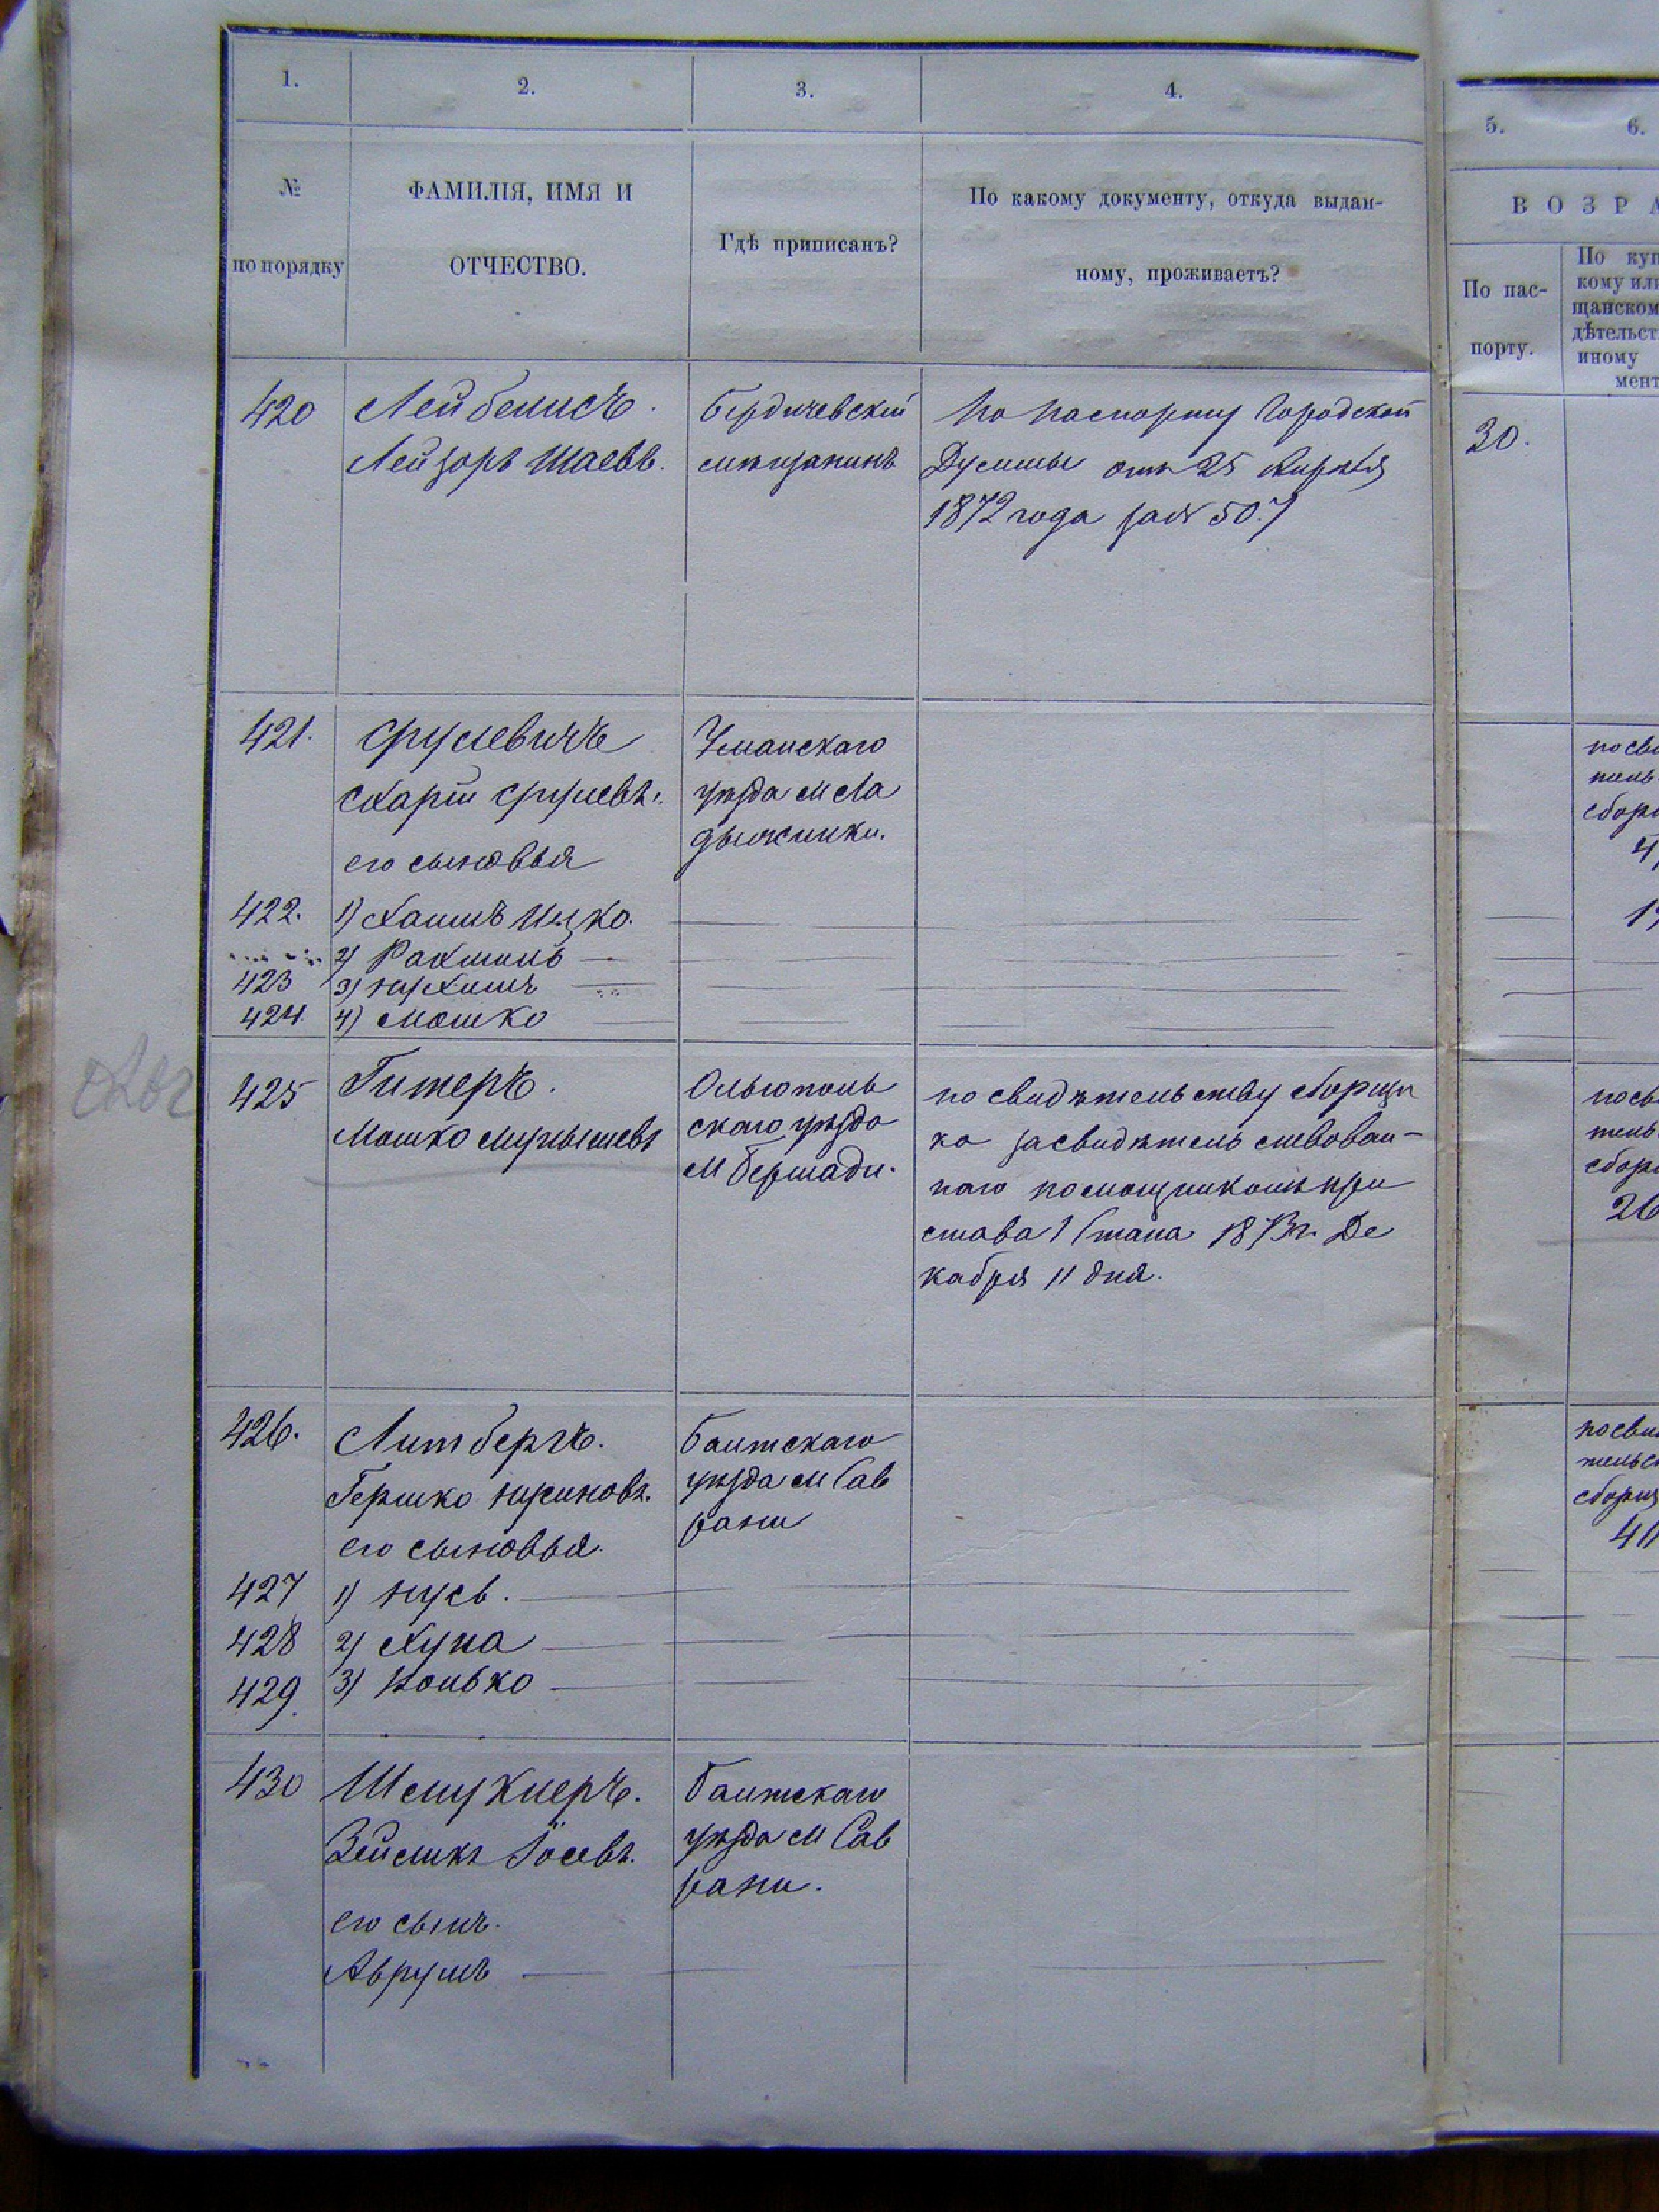 1.
2.
3.
4.
5.
6.
№
по порядку
ФАМИЛІЯ, ИМЯ И
ОТЧЕСТВО.
Гдѣ приписанъ?
По какому документу, откуда выдан-
ному, проживаетъ?
ВОЗРА
По пас-
порту.
По куп
кому или
щанском
дѣтельст
иному
мент
420
Лейбелисъ.
Лейзоръ Шаевъ.
Бердичевский
мѣщанинъ
По паспорту Городской
Думмы отъ 25 Апрѣля
1872 года за № 507
30.
421.
Срулевичъ
Срулевъ.
его сыновья
Уманскаго
уѣзда м Ла
дыжинки.
посви
тель
сбор
422.
1) Хаимъ Ицко.
2) Рахмиль
423
3) Нухимъ
424
4) Мошко
425
Гитеръ.
Мошко
Ольгополь
скаго уѣзда
м Бершади.
по свидѣтельству сборщи
ка засвидѣтельствован-
наго помощникомъ при
става 1 Стана 1873 г. Де
кабря 11 дня.
посви
тель
сбор
26
426.
Литбергъ.
Гершко Нусиновъ.
его сыновья.
Балтскаго
уѣзда м Сав
рани
посви
тельс
сборщ
427
1) Нусь.
428
2) Хуна
429.
3) Іолько
430
Шмуклеръ.
Зейликъ Іосевъ.
его сынъ.
Аврумъ
Балтскаго
уѣзда м Сав
рани.